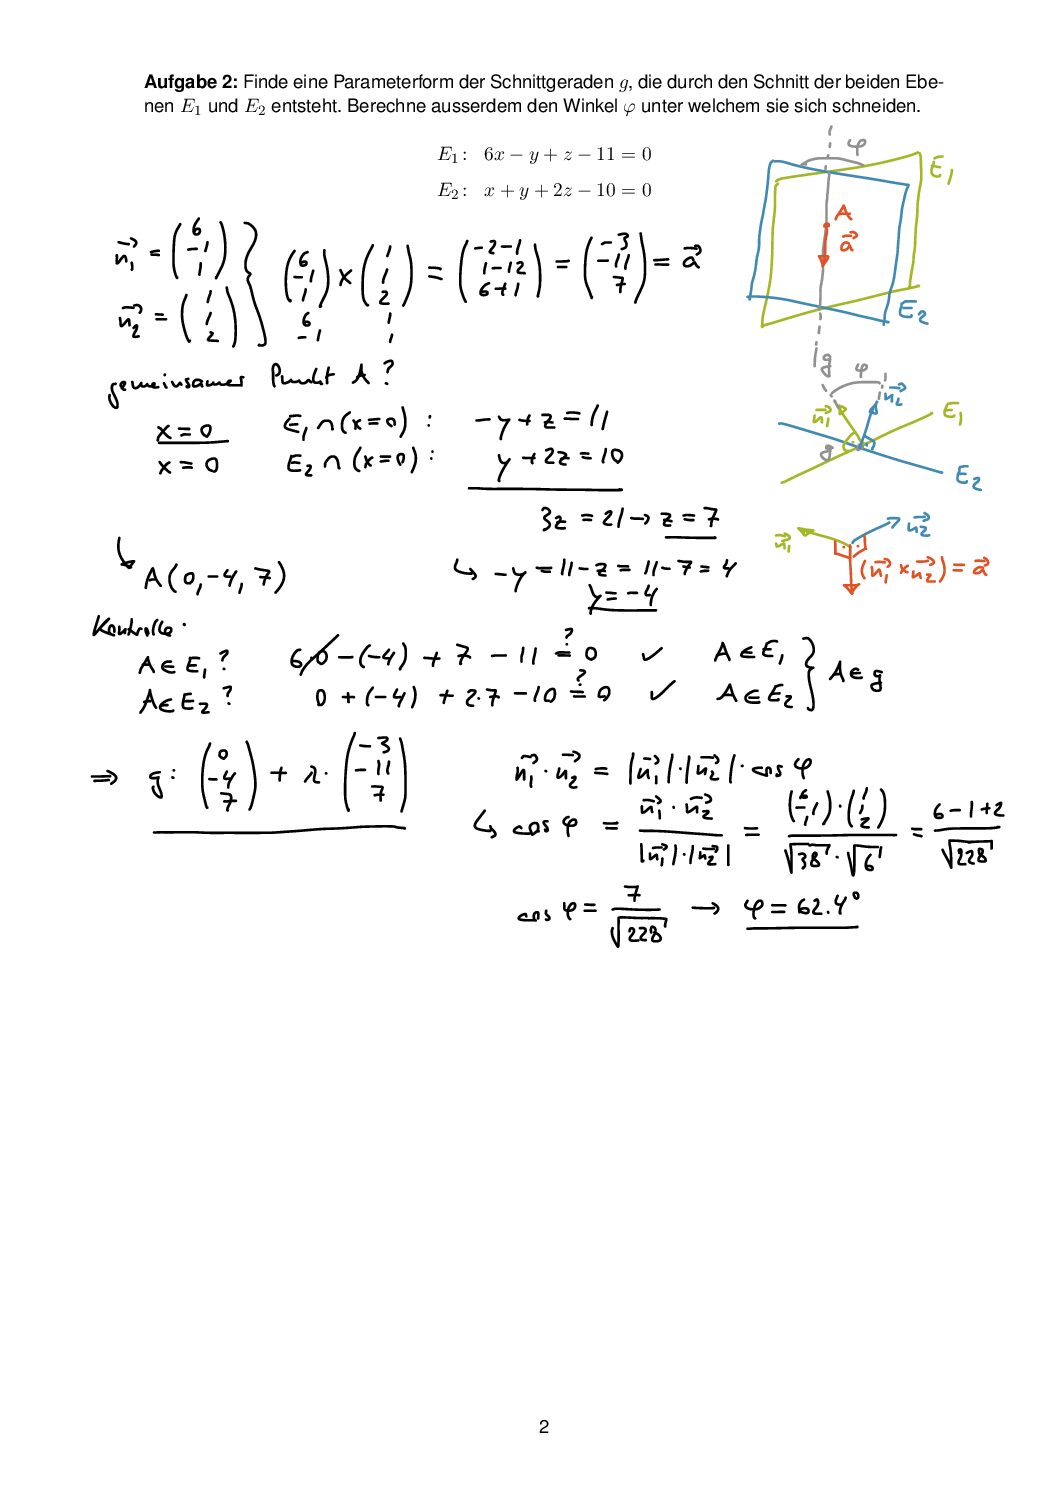 Aufgabe 2: Finde eine Parameterform der Schnittgeraden g, die durch den Schnitt der beiden Ebe-
nen E₁ und E₂ entsteht. Berechne ausserdem den Winkel φ unter welchem sie sich schneiden.
E₁: 6x − y + z − 11 = 0
E₂: x + y + 2z − 10 = 0
φ
E₁
A
a⃗
E₂
g
n₁⃗ = (6 −1 1)
n₂⃗ = (1 1 2)
} (6 −1 1) × (1 1 2) = (−2−1 1−12 6+1) = (−3 −11 7) = a⃗
6 1
−1 1
gemeinsamer Punkt A?
φ
n₁⃗ n₂⃗ E₁
g
E₂
x = 0 E₁ ∩ (x=0): −y + z = 11
x = 0 E₂ ∩ (x=0): y + 2z = 10
3z = 21 → z = 7
n₁⃗ n₂⃗
(n₁⃗ × n₂⃗) = a⃗
↳ A(0, −4, 7) ↳ −y = 11 − z = 11 − 7 = 4
y = −4
Kontrolle:
A ∈ E₁? 6·0 − (−4) + 7 − 11 ≟ 0 ✓ A ∈ E₁
A ∈ E₂? 0 + (−4) + 2·7 − 10 ≟ 0 ✓ A ∈ E₂ } A ∈ g
⇒ g: (0 −4 7) + λ · (−3 −11 7)
n₁⃗ · n₂⃗ = |n₁⃗| · |n₂⃗| · cos φ
↳ cos φ = n₁⃗ · n₂⃗ / |n₁⃗| · |n₂⃗| = (6 −1 1) · (1 1 2) / √38 · √6 = 6 − 1 + 2 / √228
cos φ = 7 / √228 → φ = 62.4°
2